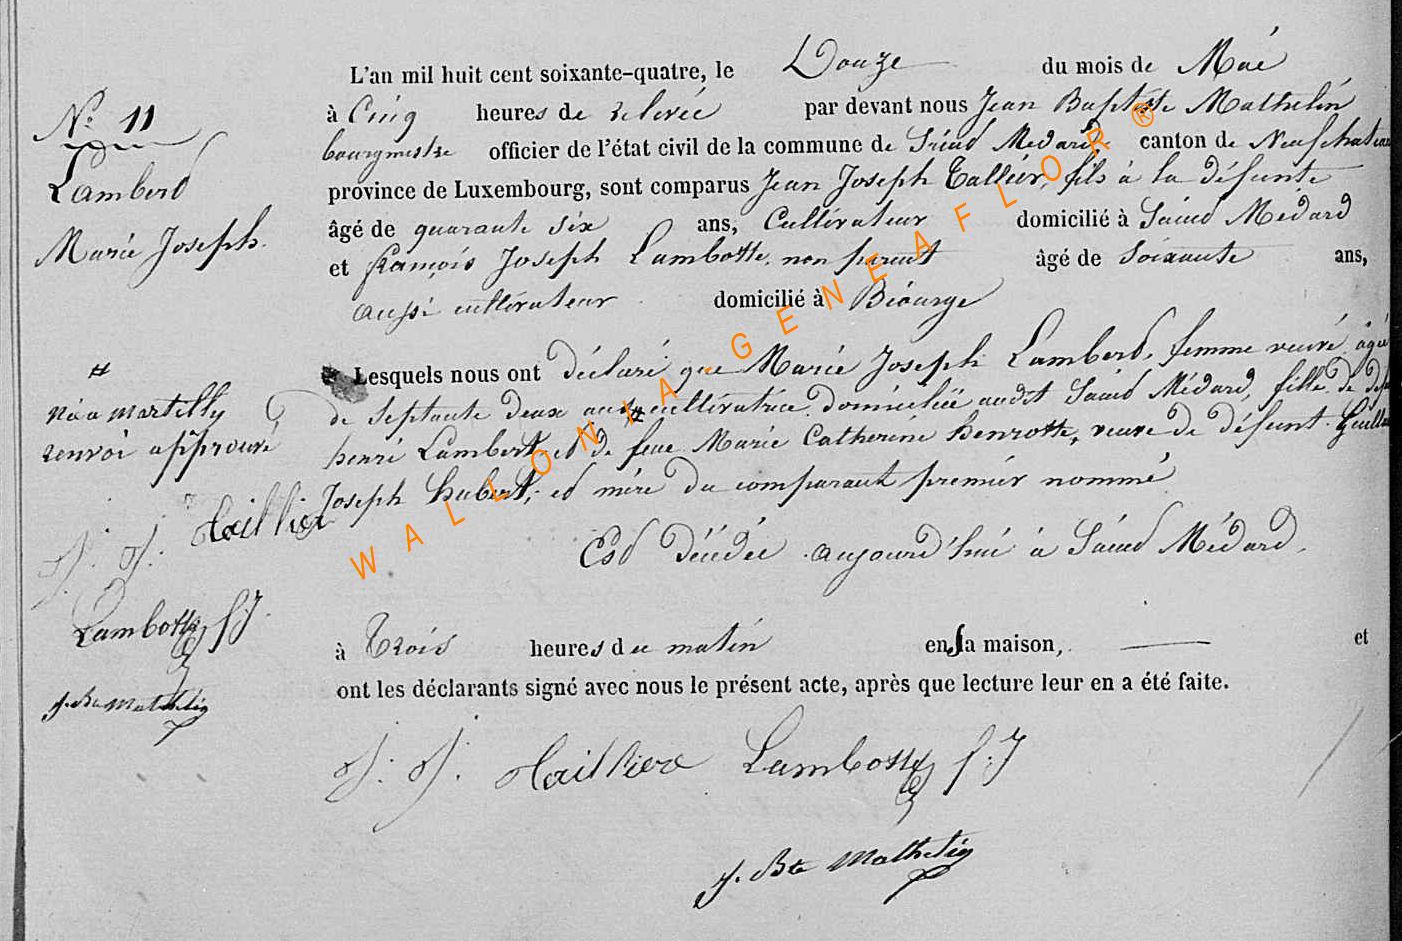 L'an mil huit cent soixante-quatre, le Douze du mois de Mai
N.° 11
à Cinq heures de relevée par devant nous Jean Baptiste Mathelin
bourgmestre officier de l'état civil de la commune de Saint Médard, canton de Neufchateau
Lambert
Marie Joseph.
province de Luxembourg, sont comparus Jean Joseph Tallier, fils à la défunte
âgé de quarante six ans, Cultivateur domicilié à Saint Médard
et françois Joseph Lambotte, non parent âgé de Soixante ans,
aussi cultivateur domicilié à Biourge
Lesquels nous ont déclaré que Marie Joseph Lambert, femme veuve âgée
de Septante deux ans # cultivatrice domiciliée audit Saint Médard, fille de
henri Lambert et de feue Marie Catherine henrotte, veuve de défunt
Joseph hubert, et mère du comparant premier nommé
#
née a martilly
renvoi approuvé
J. J. Taillier
Lambotte f. J.
J. Bte Mathelin
Est décédée aujourd'hui à Saint Médard.
à Trois heures du matin en sa maison, et
ont les déclarants signé avec nous le présent acte, après que lecture leur en a été faite.
J. J. Taillier Lambotte f. J
J. Bte Mathelin
WALLONIA-GENEAFLOR ®